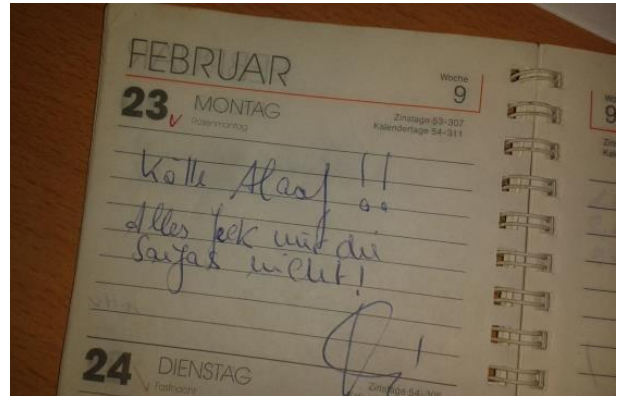 FEBRUAR
Woche
9
23 MONTAG
Rosenmontag
Zinstage 53-307
Kalendertage 54-311
Kölle Alaaf !!
Alles Jeck nur die
nicht!
24 DIENSTAG
Fastnacht
Zinstage 54-306
9